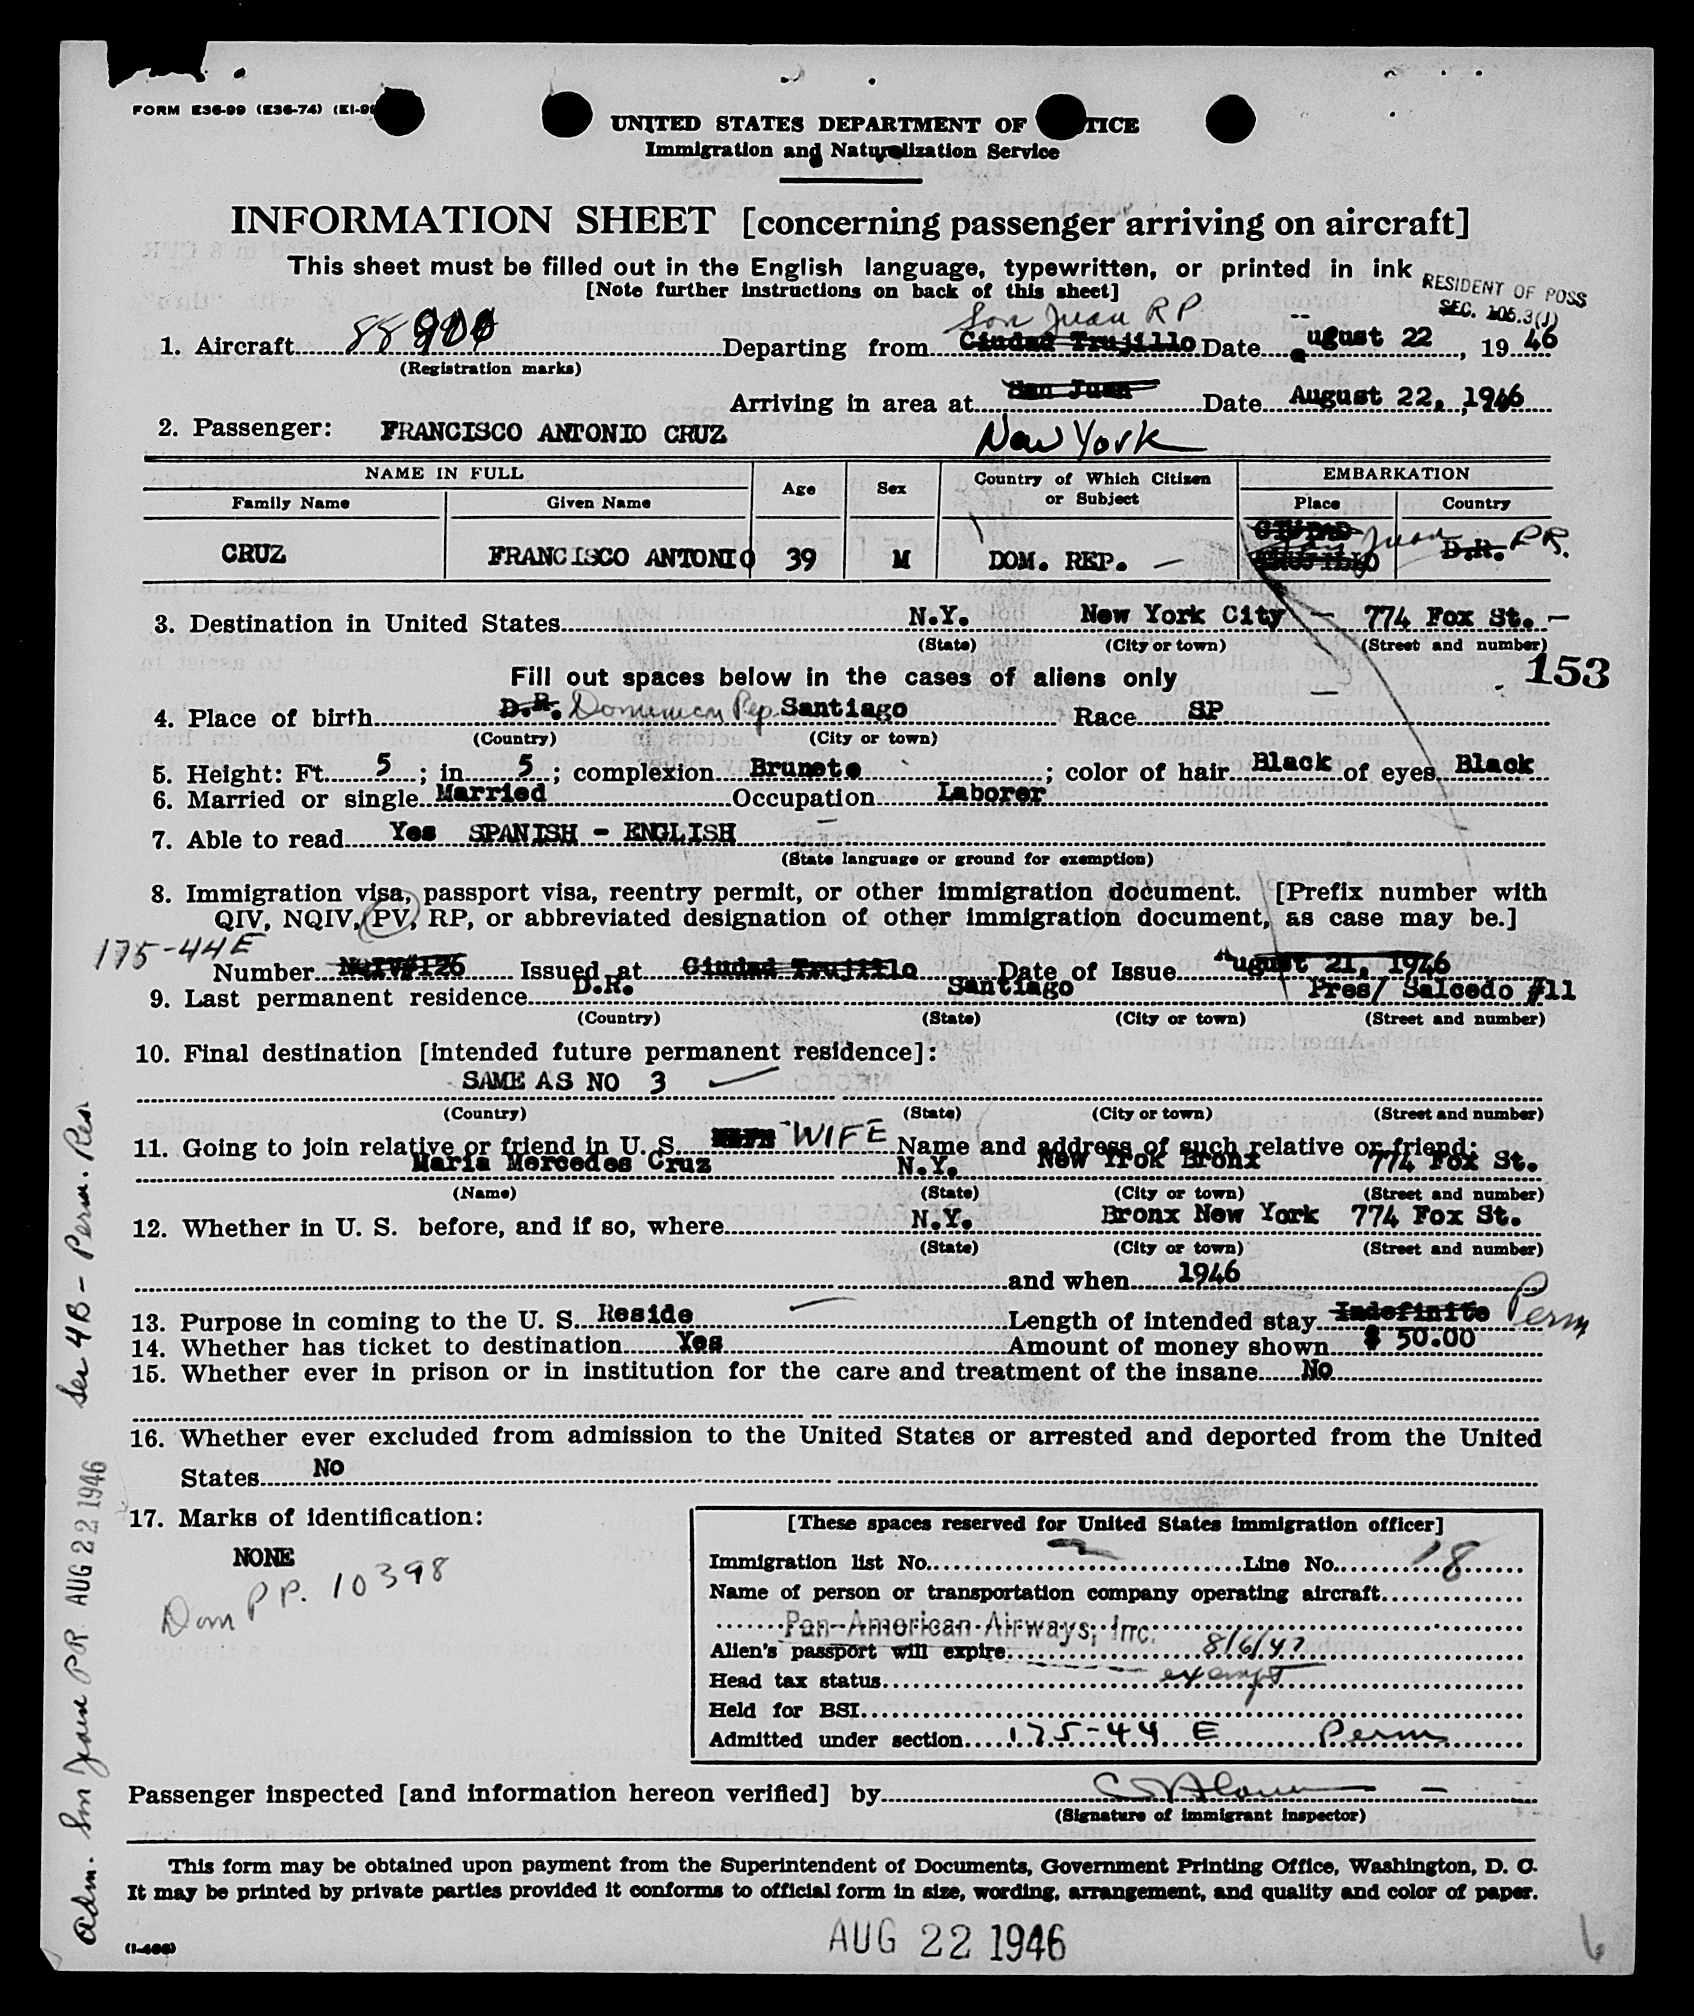 FORM E36-99 (E36-74) (EI-9
UNITED STATES DEPARTMENT OF TICE
Immigration and Naturalization Service
INFORMATION SHEET [concerning passenger arriving on aircraft]
This sheet must be filled out in the English language, typewritten, or printed in ink
[Note further instructions on back of this sheet]
RESIDENT OF POSS
SEC. 105.3(J)
San Juan RP
1. Aircraft 88 900 Departing from Ciudad Trujillo Date August 22, 1946
(Registration marks)
Arriving in area at San Juan Date August 22, 1946
2. Passenger: FRANCISCO ANTONIO CRUZ New York
NAME IN FULL Age Sex Country of Which Citizen or Subject EMBARKATION
Family Name Given Name Place Country
CRUZ FRANCISCO ANTONIO 39 M DOM. REP. — CIUDAD TRUJILLO San Juan D.R. PR.
3. Destination in United States N.Y. New York City — 774 Fox St. —
(State) (City or town) (Street and number)
Fill out spaces below in the cases of aliens only
153
4. Place of birth D.R. Dominican Rep. Santiago Race SP
(Country) (City or town)
5. Height: Ft. 5; in. 5; complexion Brunete; color of hair Black of eyes Black
6. Married or single Married Occupation Laborer
7. Able to read Yes SPANISH - ENGLISH
(State language or ground for exemption)
8. Immigration visa, passport visa, reentry permit, or other immigration document. [Prefix number with
QIV, NQIV, PV, RP, or abbreviated designation of other immigration document, as case may be.]
175-44E
Number NQIV#126 Issued at Ciudad Trujillo Date of Issue August 21, 1946
9. Last permanent residence D.R. Santiago Pres/ Salcedo #11
(Country) (State) (City or town) (Street and number)
10. Final destination [intended future permanent residence]:
SAME AS NO 3
(Country) (State) (City or town) (Street and number)
11. Going to join relative or friend in U. S. WIFE Name and address of such relative or friend:
Maria Mercedes Cruz N.Y. New Yrok Bronx 774 Fox St.
(Name) (State) (City or town) (Street and number)
12. Whether in U. S. before, and if so, where N.Y. Bronx New York 774 Fox St.
(State) (City or town) (Street and number)
and when 1946
13. Purpose in coming to the U. S. Reside Length of intended stay Indefinite Perm
14. Whether has ticket to destination Yes Amount of money shown $ 50.00
15. Whether ever in prison or in institution for the care and treatment of the insane No
16. Whether ever excluded from admission to the United States or arrested and deported from the United
States No
17. Marks of identification:
NONE
Dom PP. 10398
[These spaces reserved for United States immigration officer]
Immigration list No. 2 Line No. 18
Name of person or transportation company operating aircraft
Pan-American Airways, Inc.
Alien's passport will expire 8/6/47
Head tax status exempt
Held for BSI
Admitted under section 175-44 E Perm
Passenger inspected [and information hereon verified] by
(Signature of immigrant inspector)
This form may be obtained upon payment from the Superintendent of Documents, Government Printing Office, Washington, D. C.
It may be printed by private parties provided it conforms to official form in size, wording, arrangement, and quality and color of paper.
AUG 22 1946
(I-466)
6
Adm. San Juan PR AUG 22 1946 Sec 4B - Perm. Res.